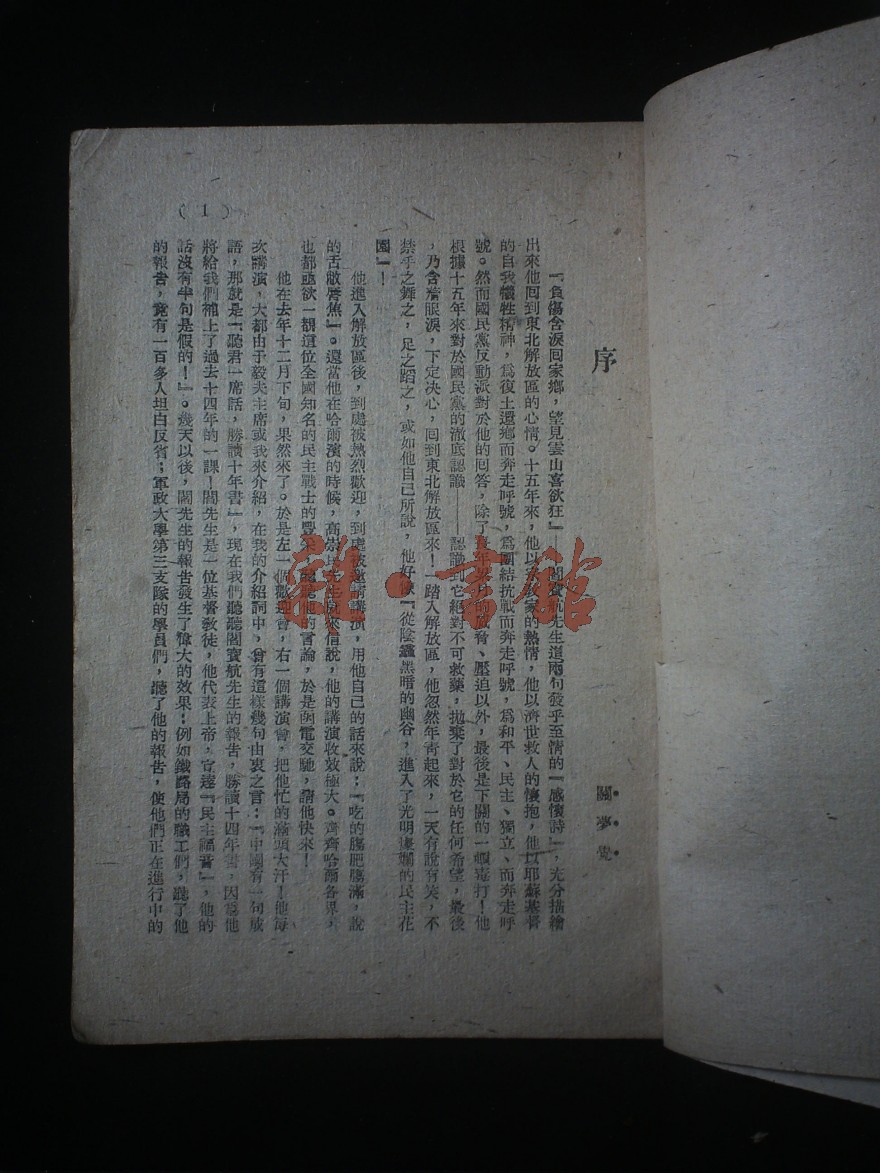 序
關夢覺
『負傷含淚回家鄉，望見雲山喜欲狂』——閻寶航先生這兩句發乎至情的『感懷詩』，充分描繪
出來他回到東北解放區的心情。十五年來，他以宗教家的熱情，他以濟世救人的懷抱，他以耶蘇基督
的自我犧牲精神，爲復土還鄉而奔走呼號，爲團結抗戰而奔走呼號，爲和平、民主、獨立、而奔走呼
號。然而國民黨反動派對於他的回答，除了長年累月的威脅、壓迫以外，最後是下關的一頓毒打！他
根據十五年來對於國民黨的澈底認識——認識到它絕對不可救藥，拋棄了對於它的任何希望，最後
，乃含着眼淚，下定决心，回到東北解放區來！一踏入解放區，他忽然年青起來，一天有說有笑，不
禁乎之舞之，足之蹈之，或如他自己所說，他好像『從陰霾黑暗的幽谷，進入了光明燦爛的民主花
園』！
他進入解放區後，到處被熱烈歡迎，到處被邀請講演，用他自己的話來說：『吃的腸肥腦滿，說
的舌敝唇焦』。還當他在哈爾濱的時候，高崇民先生就來信說，他的講演收效極大。齊齊哈爾各界，
也都亟欲一覩這位全國知名的民主戰士的豐采，聽他的言論，於是函電交馳，請他快來！
他在去年十二月下旬，果然來了。於是左一個歡迎會，右一個講演會，把他忙的滿頭大汗！他每
次講演，大都由于毅夫主席或我來介紹，在我的介紹詞中，曾有這樣幾句由衷之言：『中國有一句成
語，那就是『聽君一席話，勝讀十年書』，現在我們聽聽閻寶航先生的報告，勝讀十四年書，因爲他
將給我們補上了過去十四年的一課！閻先生是一位基督教徒，他代表上帝，宣達『民主福音』，他的
話沒有半句是假的！』。幾天以後，閻先生的報告發生了偉大的效果：例如鐵路局的職工們，聽了他
的報告，竟有一百多人坦白反省；軍政大學第三支隊的學員們，聽了他的報告，使他們正在進行中的
（1）
雜·書館